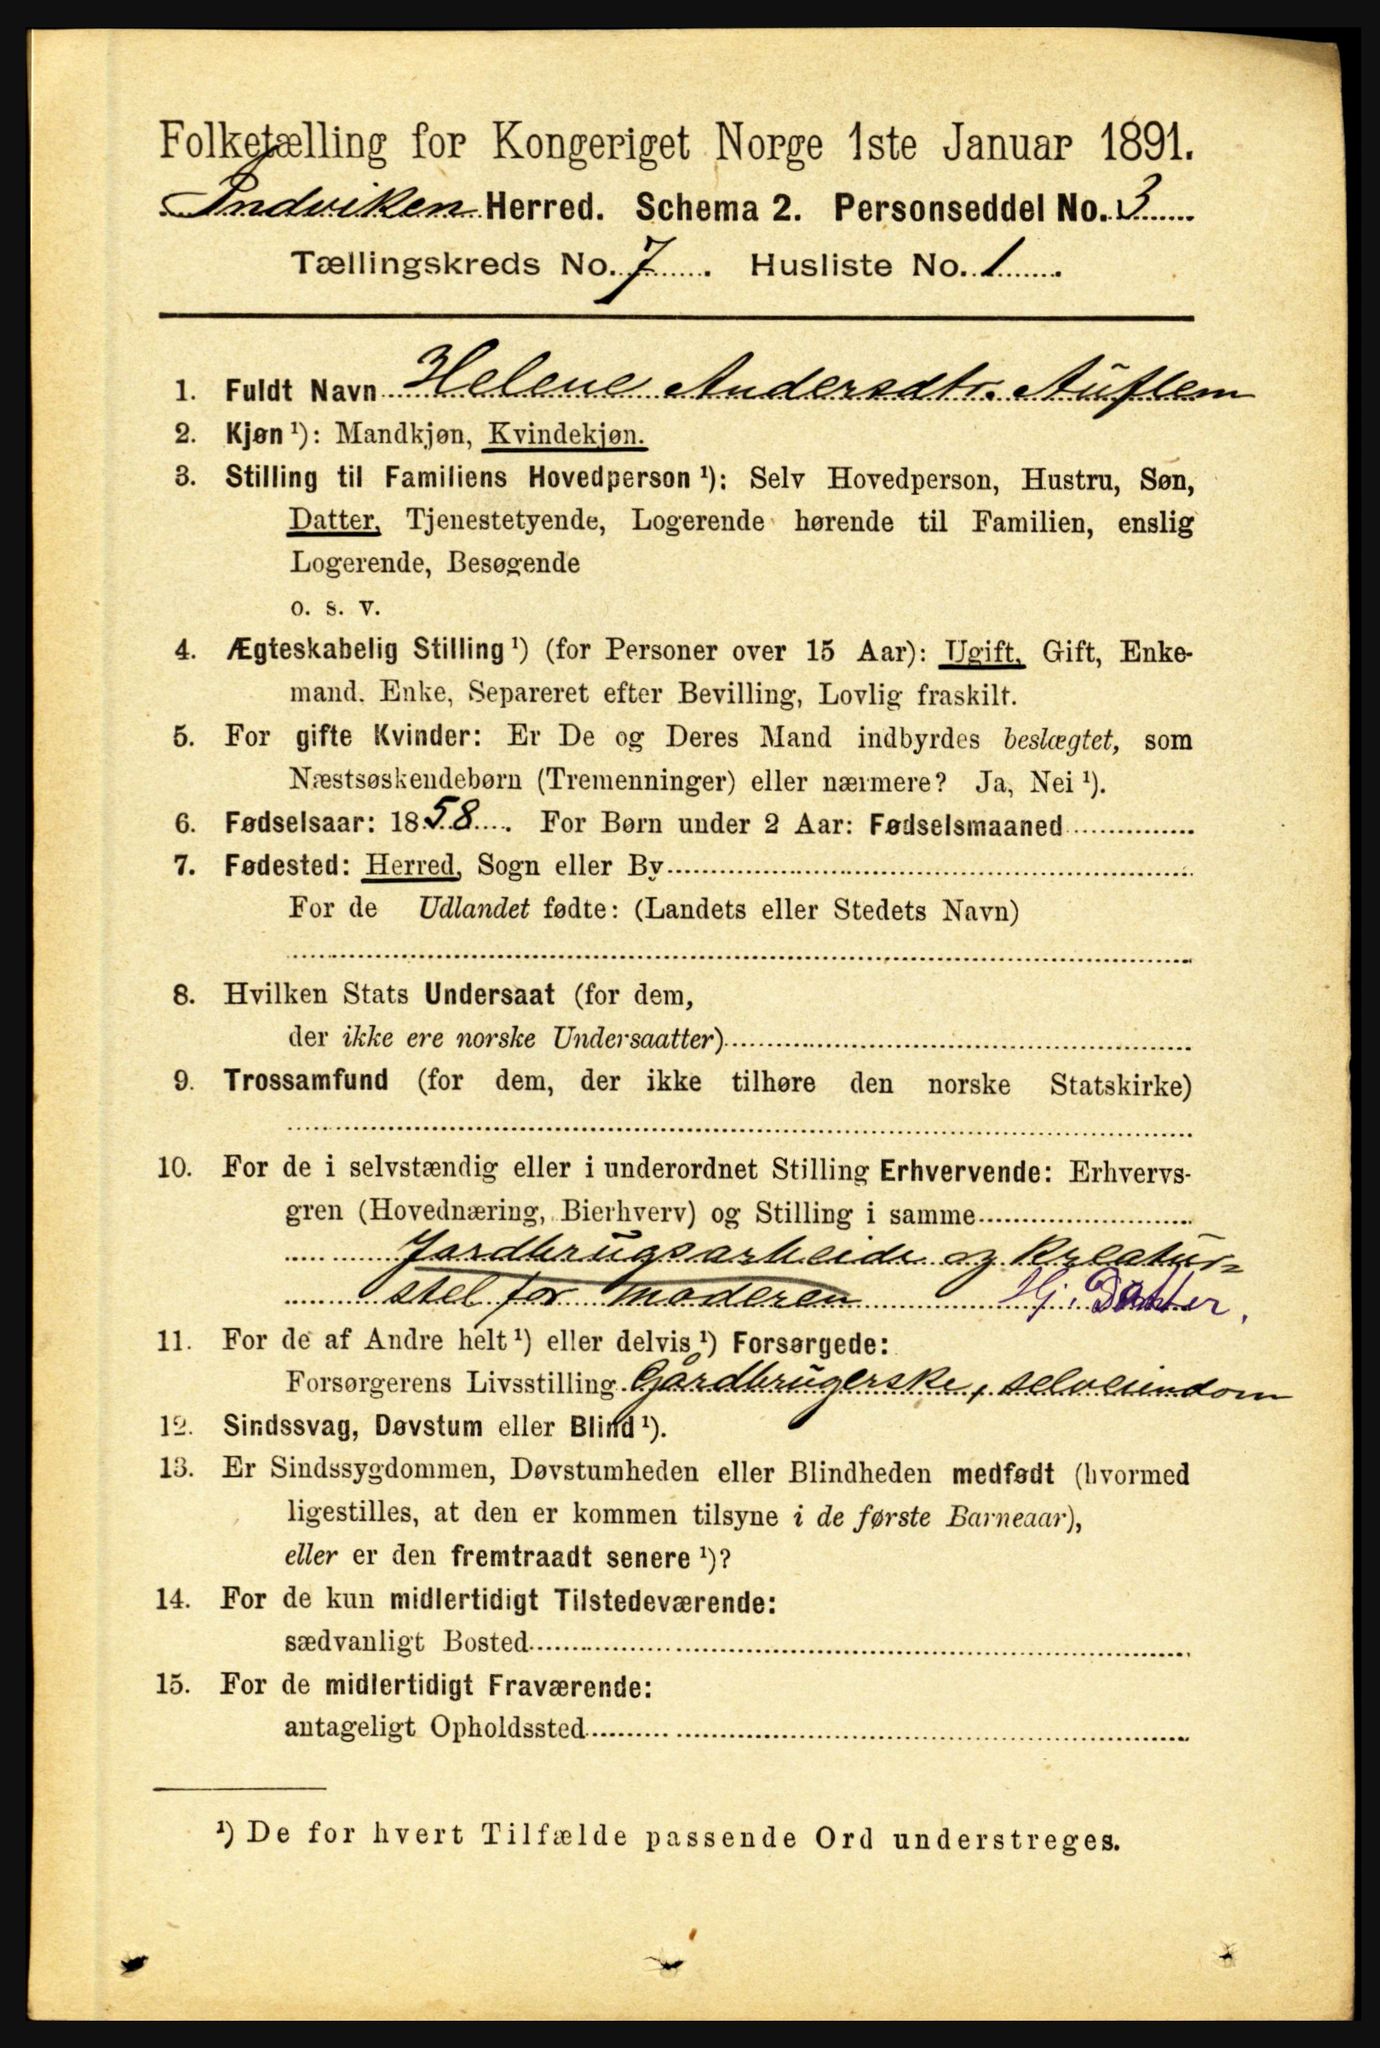 Folketælling for Kongeriget Norge 1ste Januar 1891.
Indviken Herred. Schema 2. Personseddel No. 3
Tællingskreds No. 7 . Husliste No. 1 .
1. Fuldt Navn Helene Andersdtr. Auflem
2. Kjøn ¹): Mandkjøn, Kvindekjøn.
3. Stilling til Familiens Hovedperson ¹): Selv Hovedperson, Hustru, Søn,
Datter, Tjenestetyende, Logerende hørende til Familien, enslig
Logerende, Besøgende
o. s. v.
4. Ægteskabelig Stilling ¹) (for Personer over 15 Aar): Ugift, Gift, Enke-
mand, Enke, Separeret efter Bevilling, Lovlig fraskilt.
5. For gifte Kvinder: Er De og Deres Mand indbyrdes beslægtet, som
Næstsøskendebørn (Tremenninger) eller nærmere? Ja, Nei ¹).
6. Fødselsaar: 1858 . For Børn under 2 Aar: Fødselsmaaned
7. Fødested: Herred, Sogn eller By
For de Udlandet fødte: (Landets eller Stedets Navn)
8. Hvilken Stats Undersaat (for dem,
der ikke ere norske Undersaatter)
9. Trossamfund (for dem, der ikke tilhøre den norske Statskirke)
10. For de i selvstændig eller i underordnet Stilling Erhvervende: Erhvervs-
gren (Hovednæring, Bierhverv) og Stilling i samme
Jordbrugsarbeide og Kreatur=
stel for moderen Hj. Datter.
11. For de af Andre helt ¹) eller delvis ¹) Forsørgede:
Forsørgerens Livsstilling Gårdbrugerske, selveiendom
12. Sindssvag, Døvstum eller Blind ¹).
13. Er Sindssygdommen, Døvstumheden eller Blindheden medfødt (hvormed
ligestilles, at den er kommen tilsyne i de første Barneaar),
eller er den fremtraadt senere ¹)?
14. For de kun midlertidigt Tilstedeværende:
sædvanligt Bosted
15. For de midlertidigt Fraværende:
antageligt Opholdssted
¹) De for hvert Tilfælde passende Ord understreges.